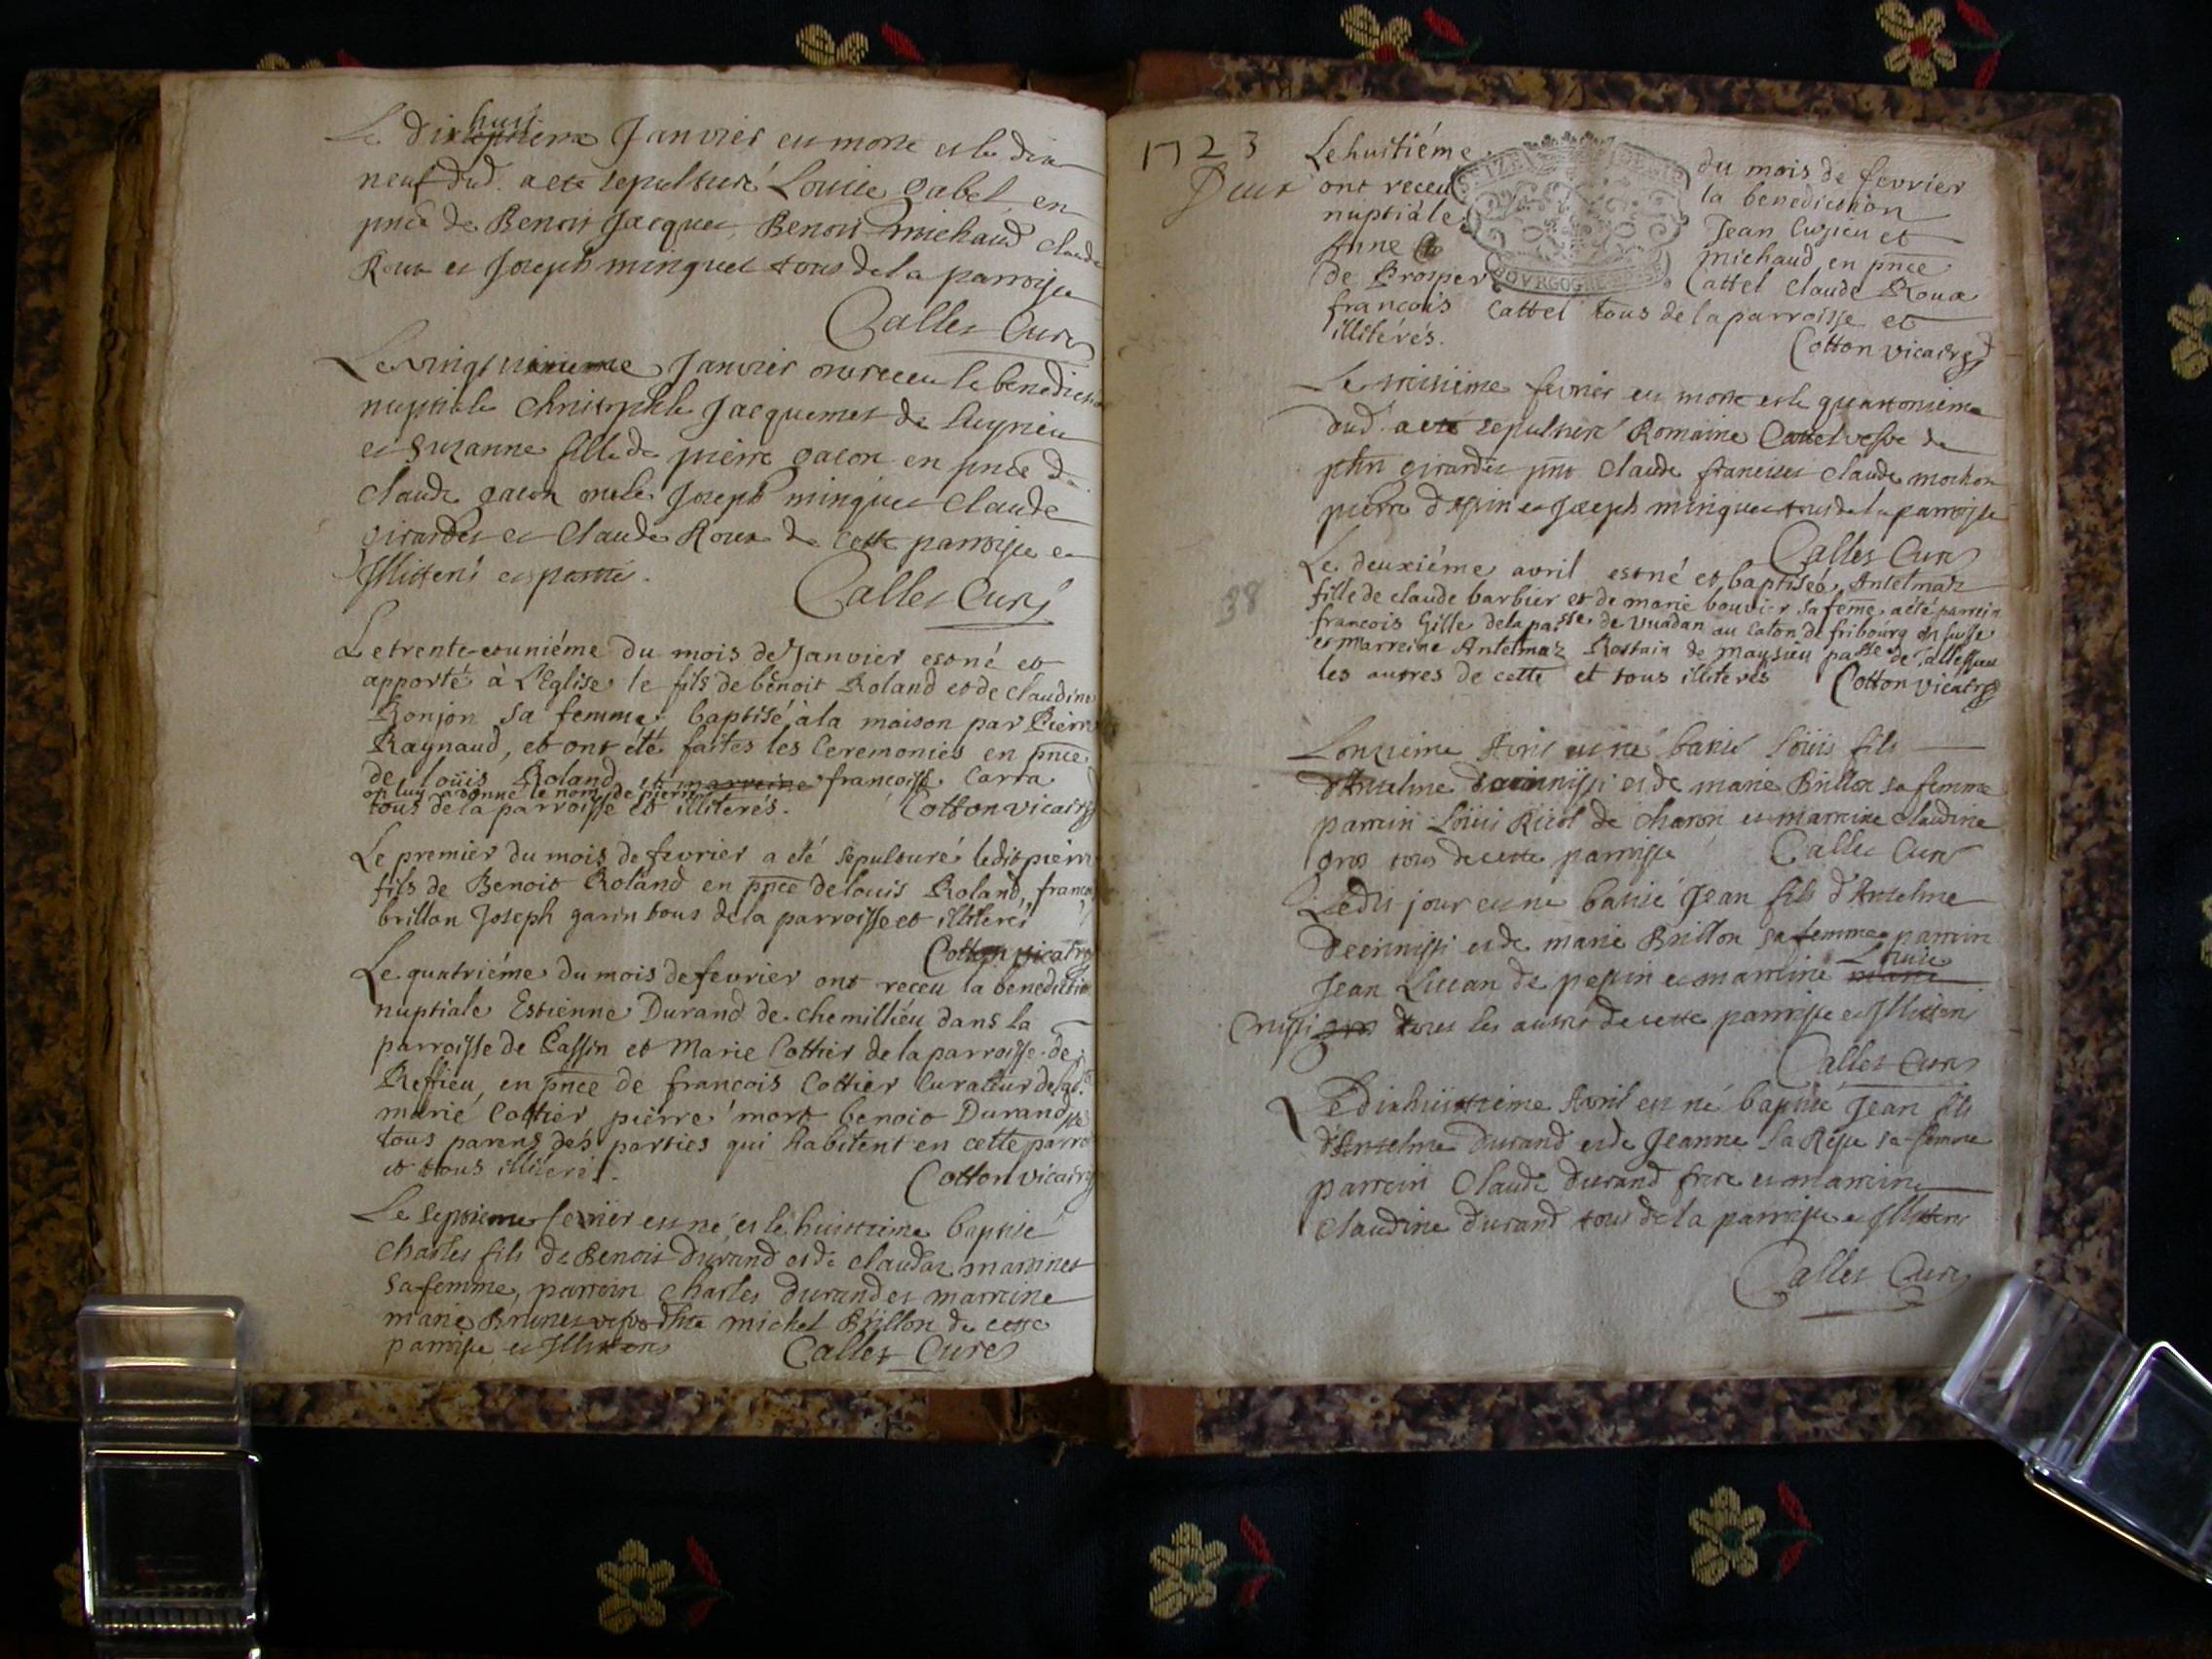 Le dix huit Janvier est mort et le dix
neuf dud. a eté sepulturé Louise gabel en
pnce de Benoit Jacquet, Benoit michaud claude
Roux et Joseph minguet tous de la parroisse
Callet Curé
Le vingt Janvier ont receu la benediction
nuptiale Christophle Jacquemet de
et Suzanne fille de pierre gacon en pnce de
claude gacon oncle Joseph minguet Claude
girardet et Claude Roux de cette parroisse et
Illiterés
Callet Curé
Le trente-et-uniéme du mois de Janvier est né et
apporté à L'Eglise le fils de bénoit Roland et de claudine
Bonjon sa femme baptisé à la maison par Pierre
Raynaud, et ont été faites les Ceremonies en pnce
de loüis Roland et marreine francoise Carra
on luy a donné le nom de pierre
tous de la parroisse et illiterés. Cotton vicaire
Le premier du mois de fevrier a eté sepulturé ledit pierre
fils de Benoit Roland en pnce de louis Roland, francois
brillon Joseph garin tous de la parroisse et illiterés
Cotton vicaire
Le quatriéme du mois de fevrier ont receu la benediction
nuptiale Estienne Durand de chemilliéu dans la
parroisse de Passin et Marie Cottier de la parroisse de
Reffieu, en pnce de francois Cottier Curateur de lad.
marie Cottier pierre mort benoit Durand
tous parens des parties qui habitent en cette parroisse
et tous illiterés. Cotton vicaire
Le septieme fevrier est né et le huittieme baptisé
Charles fils de Benoit Durand et de claudaz martinet
sa femme, parrein Charles Durand et marreine
marie Brunet michel Brillon de cette
parroisse et Illiterés Callet Curé
1723
Deux
Le huitiéme du mois de fevrier
ont receu la benediction
nuptiale Jean Cusieu et
Anne michaud en pnce
de Prosper Cattel Claude Roux
francois Cattel tous de la parroisse et
illiterés. Cotton vicaire
SEIZE DE
BOVRGOGNE
Le treisiéme fevrier est mort et le quattorsieme
dud. a eté sepulturé Romaine Cattel vefve de
girardet pnt Claude francillet Claude mochon
pierre d'Epin et Joseph minguet tous de la parroisse
Callet Curé
38
Le deuxiéme avril est né et baptiséé Antelmaz
fille de claude barbier et de marie bouvier sa feme a été parrein
francois Gille de la passe de Vuadan au Caton de fribourg en suisse
et Marreine Antelmaz Rostain de maysieu passe de Tallissieu
les autres de cette et tous illiterés Cotton vicaire
L'onzieme Avril est né batisé Loüis fils
d'Anselme et de marie Brillon sa femme
parrein Loüis Ricol de charon et marreine claudine
gros tous de cette parroisse Callet Curé
Ledit jour est né batisé Jean fils d'Anselme
et de marie Brillon sa femme parrein
Jean Lucan de pepin et marreine marie Louise
gros tous les autres de cette parroisse et Illiterés
Callet Curé
Le dixhuittieme Avril est né baptisé Jean fils
d'Anselme Durand et de Jeanne La Rése sa femme
parrein Claude Durand frere et marreine
Claudine Durand tous de la parroisse et Illiterés
Callet Curé